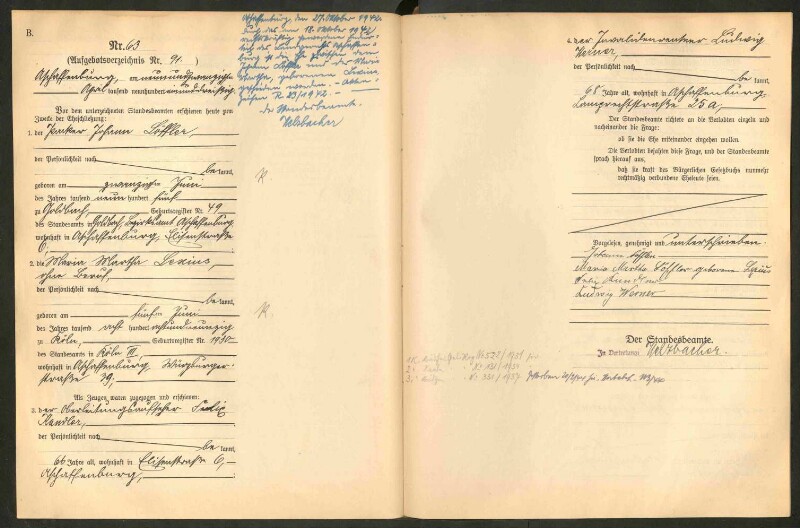 B.
Nr. 63
(Aufgebotsverzeichnis Nr. 91.)
Aschaffenburg, am neunundzwanzigsten
April tausend neunhundert einunddreißig
Vor dem unterzeichneten Standesbeamten erschienen heute zum
Zwecke der Eheschließung:
1. der Packer Johann Löffler,
der Persönlichkeit nach
be kannt,
geboren am zwanzigsten Juni
des Jahres tausend neun hundert fünf
zu Goldbach, Geburtsregister Nr. 49
des Standesamts in Goldbach, Bezirksamt Aschaffenburg
wohnhaft in Aschaffenburg, Elisenstraße
6;
2. die Maria Martha Lexius,
ohne Beruf,
der Persönlichkeit nach
be kannt,
geboren am fünften Juni
des Jahres tausend acht hundert achtundneunzig
zu Köln, Geburtsregister Nr. 1930
des Standesamts in Köln III
wohnhaft in Aschaffenburg, Würzburger-
straße 39;
Als Zeugen waren zugezogen und erschienen:
3. der Oberleitungsaufseher Felix
Kandler,
der Persönlichkeit nach
be kannt,
66 Jahre alt, wohnhaft in Elisenstraße 6,
Aschaffenburg,
Aschaffenburg, den 27. Oktober 1942
Durch das am 18. Oktober 1942
rechtskräftig gewordene Urteil
des Landgerichts Aschaffen-
burg ist die Ehe zwischen dem
Johann Löffler und der Maria
Martha, geborenen Lexius
geschieden worden. - Akten-
zeichen R 83/1942. -
der Standesbeamte.
Welzbacher
4. der Invalidenrentner Ludwig
Werner
der Persönlichkeit nach
be kannt,
68 Jahre alt, wohnhaft in Aschaffenburg,
Lamprechtstraße 25a,
Der Standesbeamte richtete an die Verlobten einzeln und
nacheinander die Frage:
ob sie die Ehe miteinander eingehen wollen.
Die Verlobten bejahten diese Frage, und der Standesbeamte
sprach hierauf aus,
daß sie kraft des Bürgerlichen Gesetzbuchs nunmehr
rechtmäßig verbundene Eheleute seien.
Vorgelesen, genehmigt und unterschrieben.
Johann Löffler
Maria Martha Löffler geborene Lexius
Felix Kandler
Ludwig Werner
Der Standesbeamte.
In Vertretung: Welzbacher.